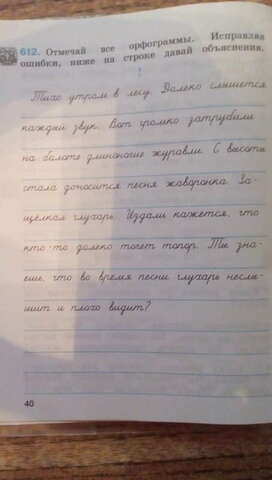 612. Отмечай все орфограммы. Исправляя
ошибки, ниже на строке давай объяснения.
Тихо утром в лесу. Далеко слышется
каждый звук. Вот громко затрубили
на болоте длиноногие журавли. С высоты
стала доносится песня жаворонка. За-
щёлкал глухарь. Издали кажется, что
кто-то долеко точет топор. Ты зна-
еше, что во время песни глухарь неслы-
шит и плохо видит?
40